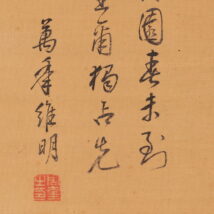 園春未到
爾獨占先
萬峯維明